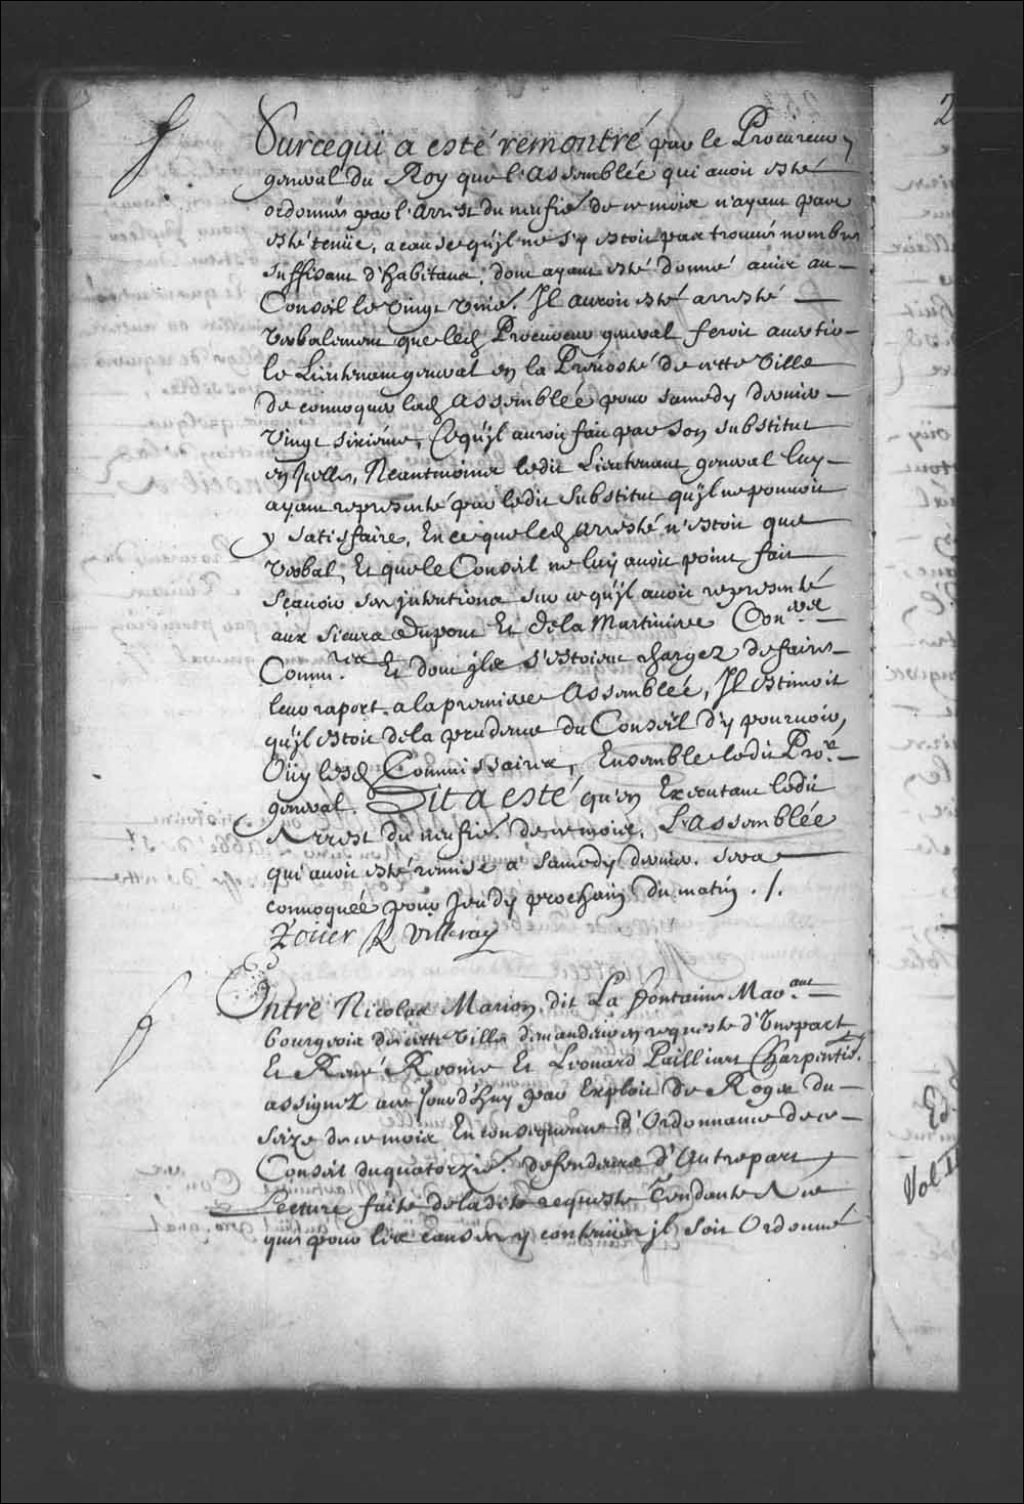 Surcequi a esté remontré par le Procureur
general du Roy que l'assemblée qui avoit esté
ordonnée par l'arrest du neufie. de ce mois n'ayant pas
esté tenüe, a cause qu'jl ne s'y estoit pas trouvé nombre
suffisant d'habitans, dont ayant esté donné avis au
Conseil le vingt unie. Jl auroit esté arresté
verbalement que led Procureur general feroit avertir
le Lieutenant general en la Prevosté de cette ville
de convoquer lad assemblée pour samedy dernier
vingt sixiéme, Ce qu'jl auroit fait par son substitut
en Jcelle, Neantmoins ledit Lieutenant general luy
ayant representé par ledit substitut qu'jl ne pouvoit
y satisfaire, En ce que led arresté n'estoit que
verbal, Et que le Conseil ne luy avoit point fait
sçavoir ses jntentions sur ce qu'jl avoit representé
aux sieurs Dupont Et de la Martiniere Con.ers
Comm.res Et dont jls s'estoient chargez de faire
leur raport a la premiere assemblée, Jl estimoit
qu'jl estoit de la prudence du Conseil d'y pourvoir,
Oüy lesd Commissaires, Ensemble ledit Pro.r
general. Dit a esté qu'en Executant ledit
Arrest du neufie. de ce mois, L'assemblée
qui avoit esté remise a samedy dernier sera
convoquée pour Jeudy prochain du matin ./.
Roüer De Villeray
Entre Nicolas Marion dit La fontaine Mar.ant
bourgeois de cette ville demandeur en requeste d'Vnepart
Et René Et Leonard Pailliart Charpentis.
assignez aux Jourd'huy par Exploit de Roger du
seize de ce mois En consequence d'Ordonnance de ce
Conseil du quatorzie. defendeurs d'Autrepart
Lecture faite de ladite requeste Tendante A ce
que pour les causes y contenües jl soit Ordonné
2
Vol. II